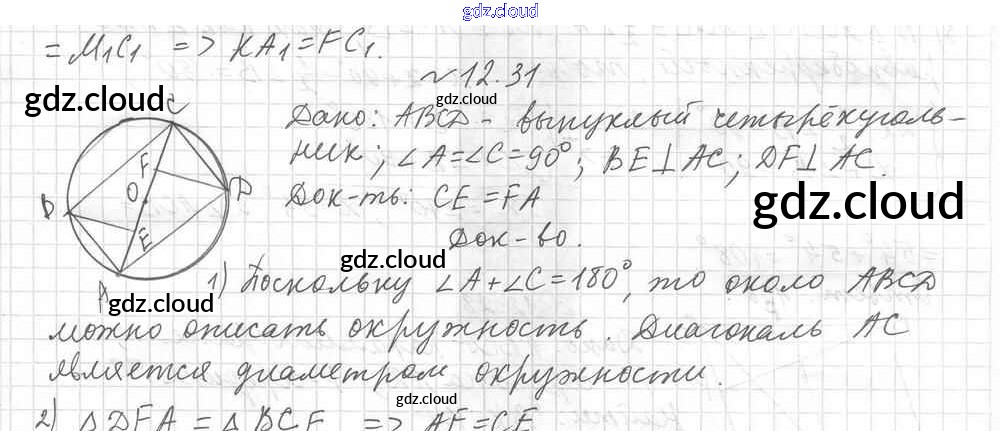 gdz.cloud
= M₁C₁ => KA₁ = FC₁.
~12.31
gdz.cloud
gdz.cloud
C
Дано: ABCD - выпуклый четырёхуголь-
ник; ∠A=∠C=90°; BE⊥AC; DF⊥AC.
F
O
B
D
E
A
Док-ть: CE = FA
gdz.cloud
Док-во.
gdz.cloud
1) Поскольку ∠A+∠C=180°, то около ABCD
gdz.cloud
можно описать окружность. Диагональ AC
является диаметром окружности.
gdz.cloud
2) △DFA = △BCE => AF=CE